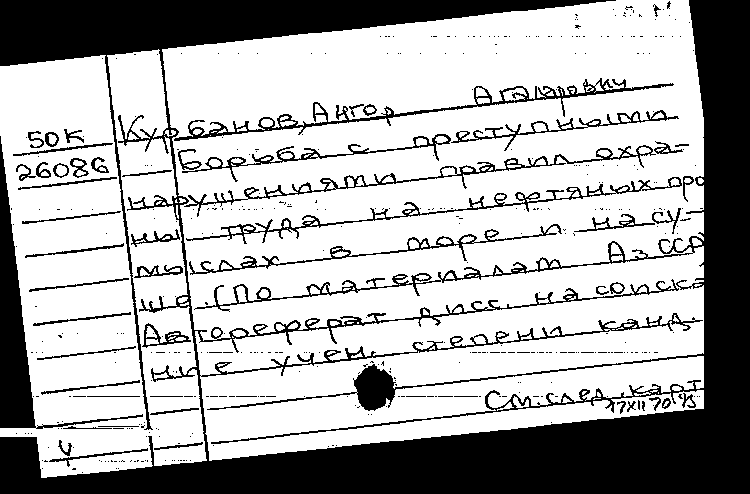 50К Курбанов, Ангор Агаларович
26086 Борьба с преступными
нарушениями правил охра-
ны труда на нефтяных про
мыслах в море и на су-
ше. (По материалам АзССР
Автореферат дисс. на соиска
ние учен. степени канд.
См. след. карт
17XII 70